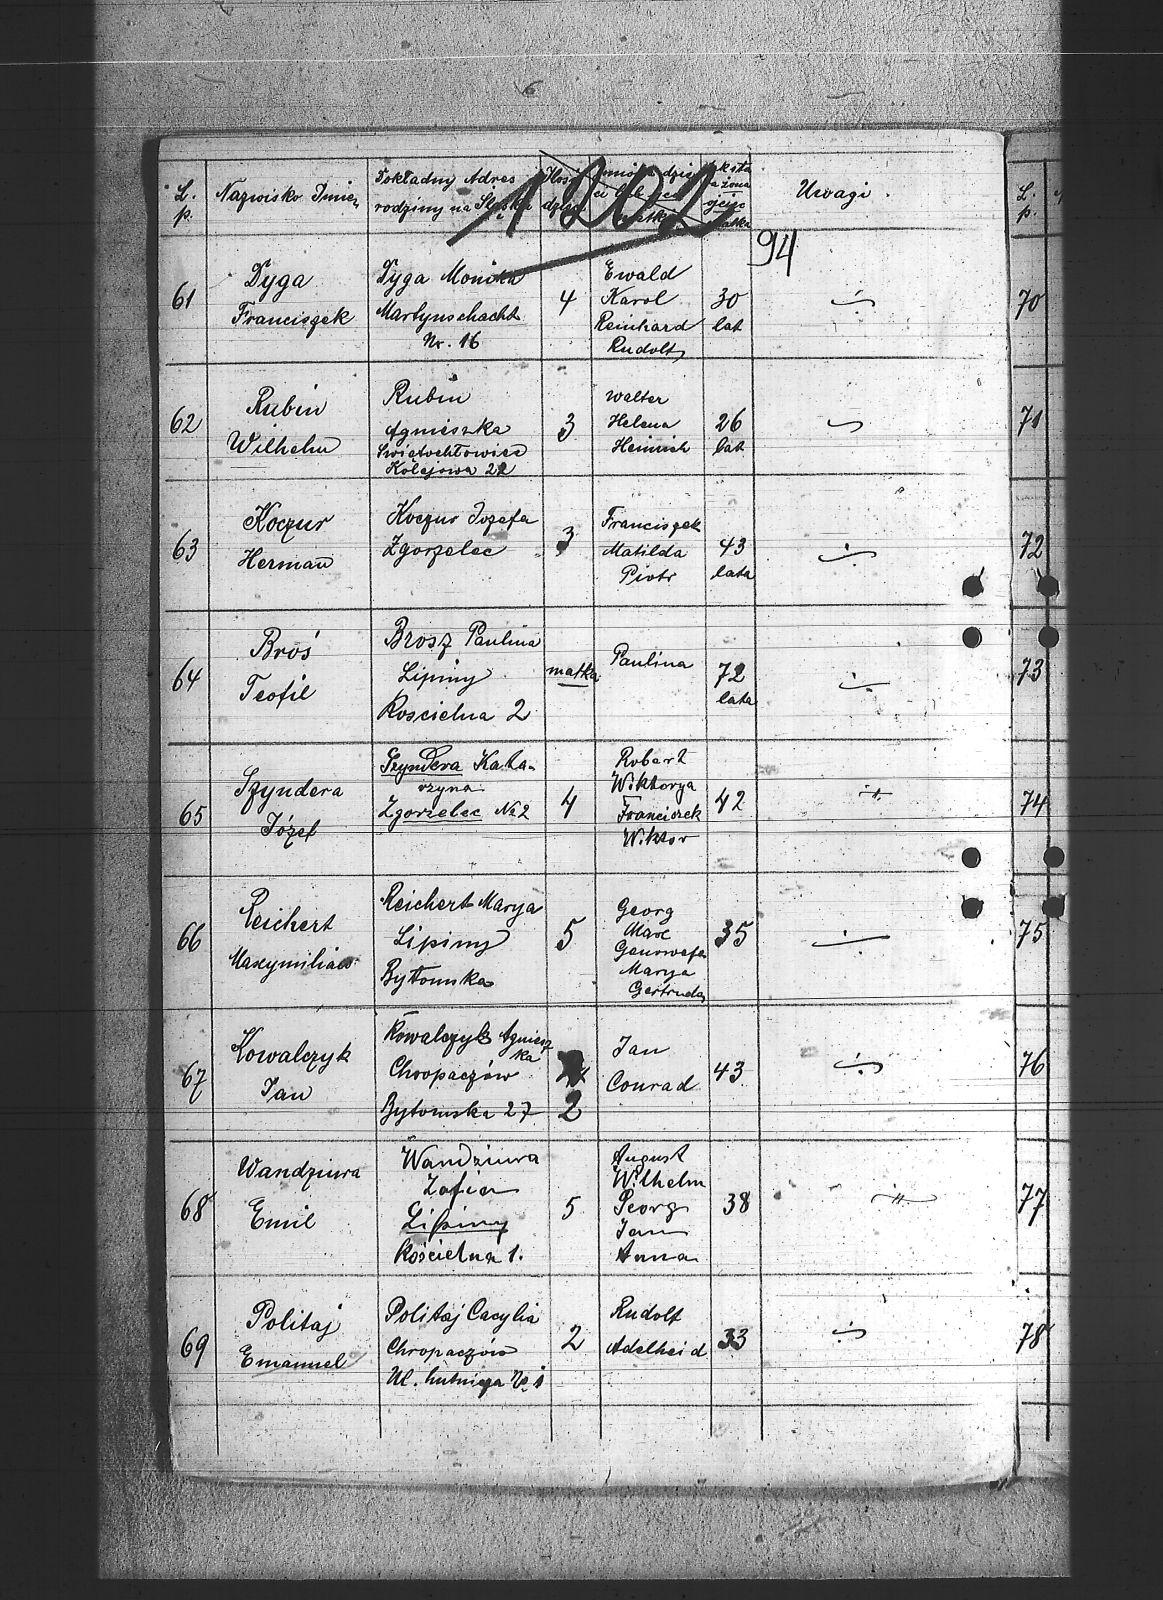 L. p. Nazwisko Imię Dokładny Adres rodziny na Śląsku Uwagi. L. p.
1202
94
61 Dyga Franciszek
Dyga Monika
Martynschacht
Nr. 16
4
Ewald
Karol
Reinhard
Rudolf
30 lat
70
62 Rubin Wilhelm
Rubin
Agnieszka
Świętochłowice
Kolejowa 22
3
Walter
Helena
Heinrich
26 lat
71
63 Koczur Herman
Koczur Jozefa
Zgorzelec
3
Franciszek
Matilda
Piotr
43 lata
72
64 Broś Teofil
Brosz Paulina
Lipiny
Koscielna 2
matka
Paulina
72 lata
73
65 Szyndera Józef
Szyndera Kata-
rzyna
Zgorzelec № 2
4
Robert
Wiktorya
Franciszek
Wiktor
42
74
66 Reichert
Reichert Marya
Lipiny
Bytomska
5
Georg
Max
Genowefa
Marya
Gertruda
35
75
67 Kowalczyk Jan
Kowalczyk Agniesz
ka
Chropaczów
Bytomska 27
2
Jan
Conrad
43
76
68 Wandziura Emil
Wandziura
Zofia
Lipiny
Kościelna 1.
5
August
Wilhelm
Georg
Jan
Anna
38
77
69 Politaj Emanuel
Politaj Cacylia
Chropaczów
Ul. hutnicza № 1
2
Rudolf
Adelheid
33
78